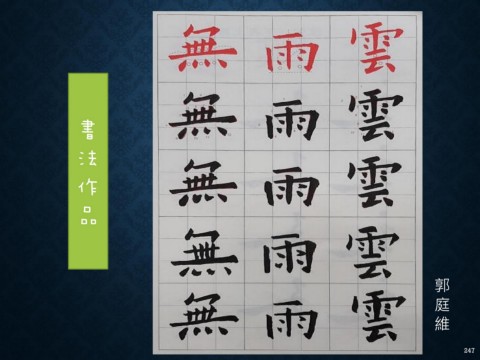 書法作品
雲雲雲雲雲
雨雨雨雨雨
無無無無無
郭庭維
247